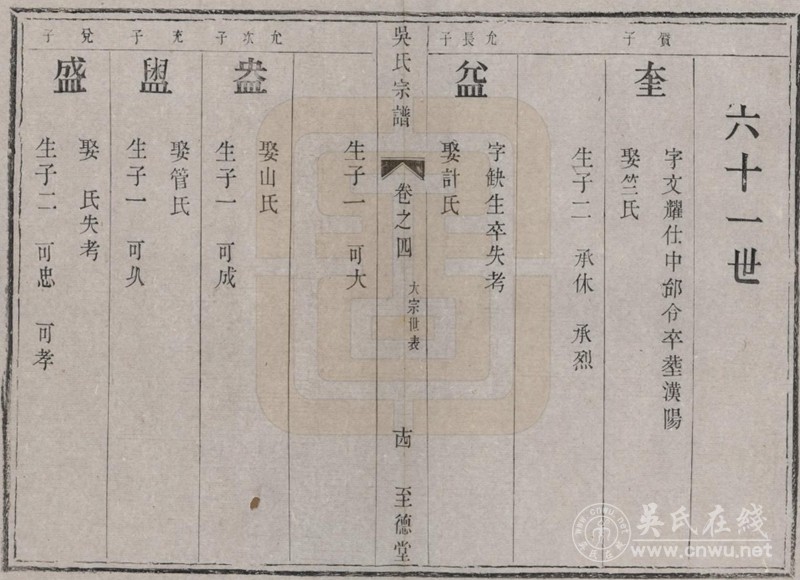 六十一世
賔子
奎
字文耀仕中邱令卒塟漢陽
娶竺氏
生子二 承休 承烈
允長子
㿽
字缺生卒失考
娶計氏
吳氏宗譜 卷之四 大宗世表 十四 至德堂
生子一 可大
允次子
盎
娶山氏
生子一 可成
充子
娶管氏
生子一 可久
兌子
盛
娶 氏失考
生子二 可忠 可孝
吳氏在线
www.cnwu.net